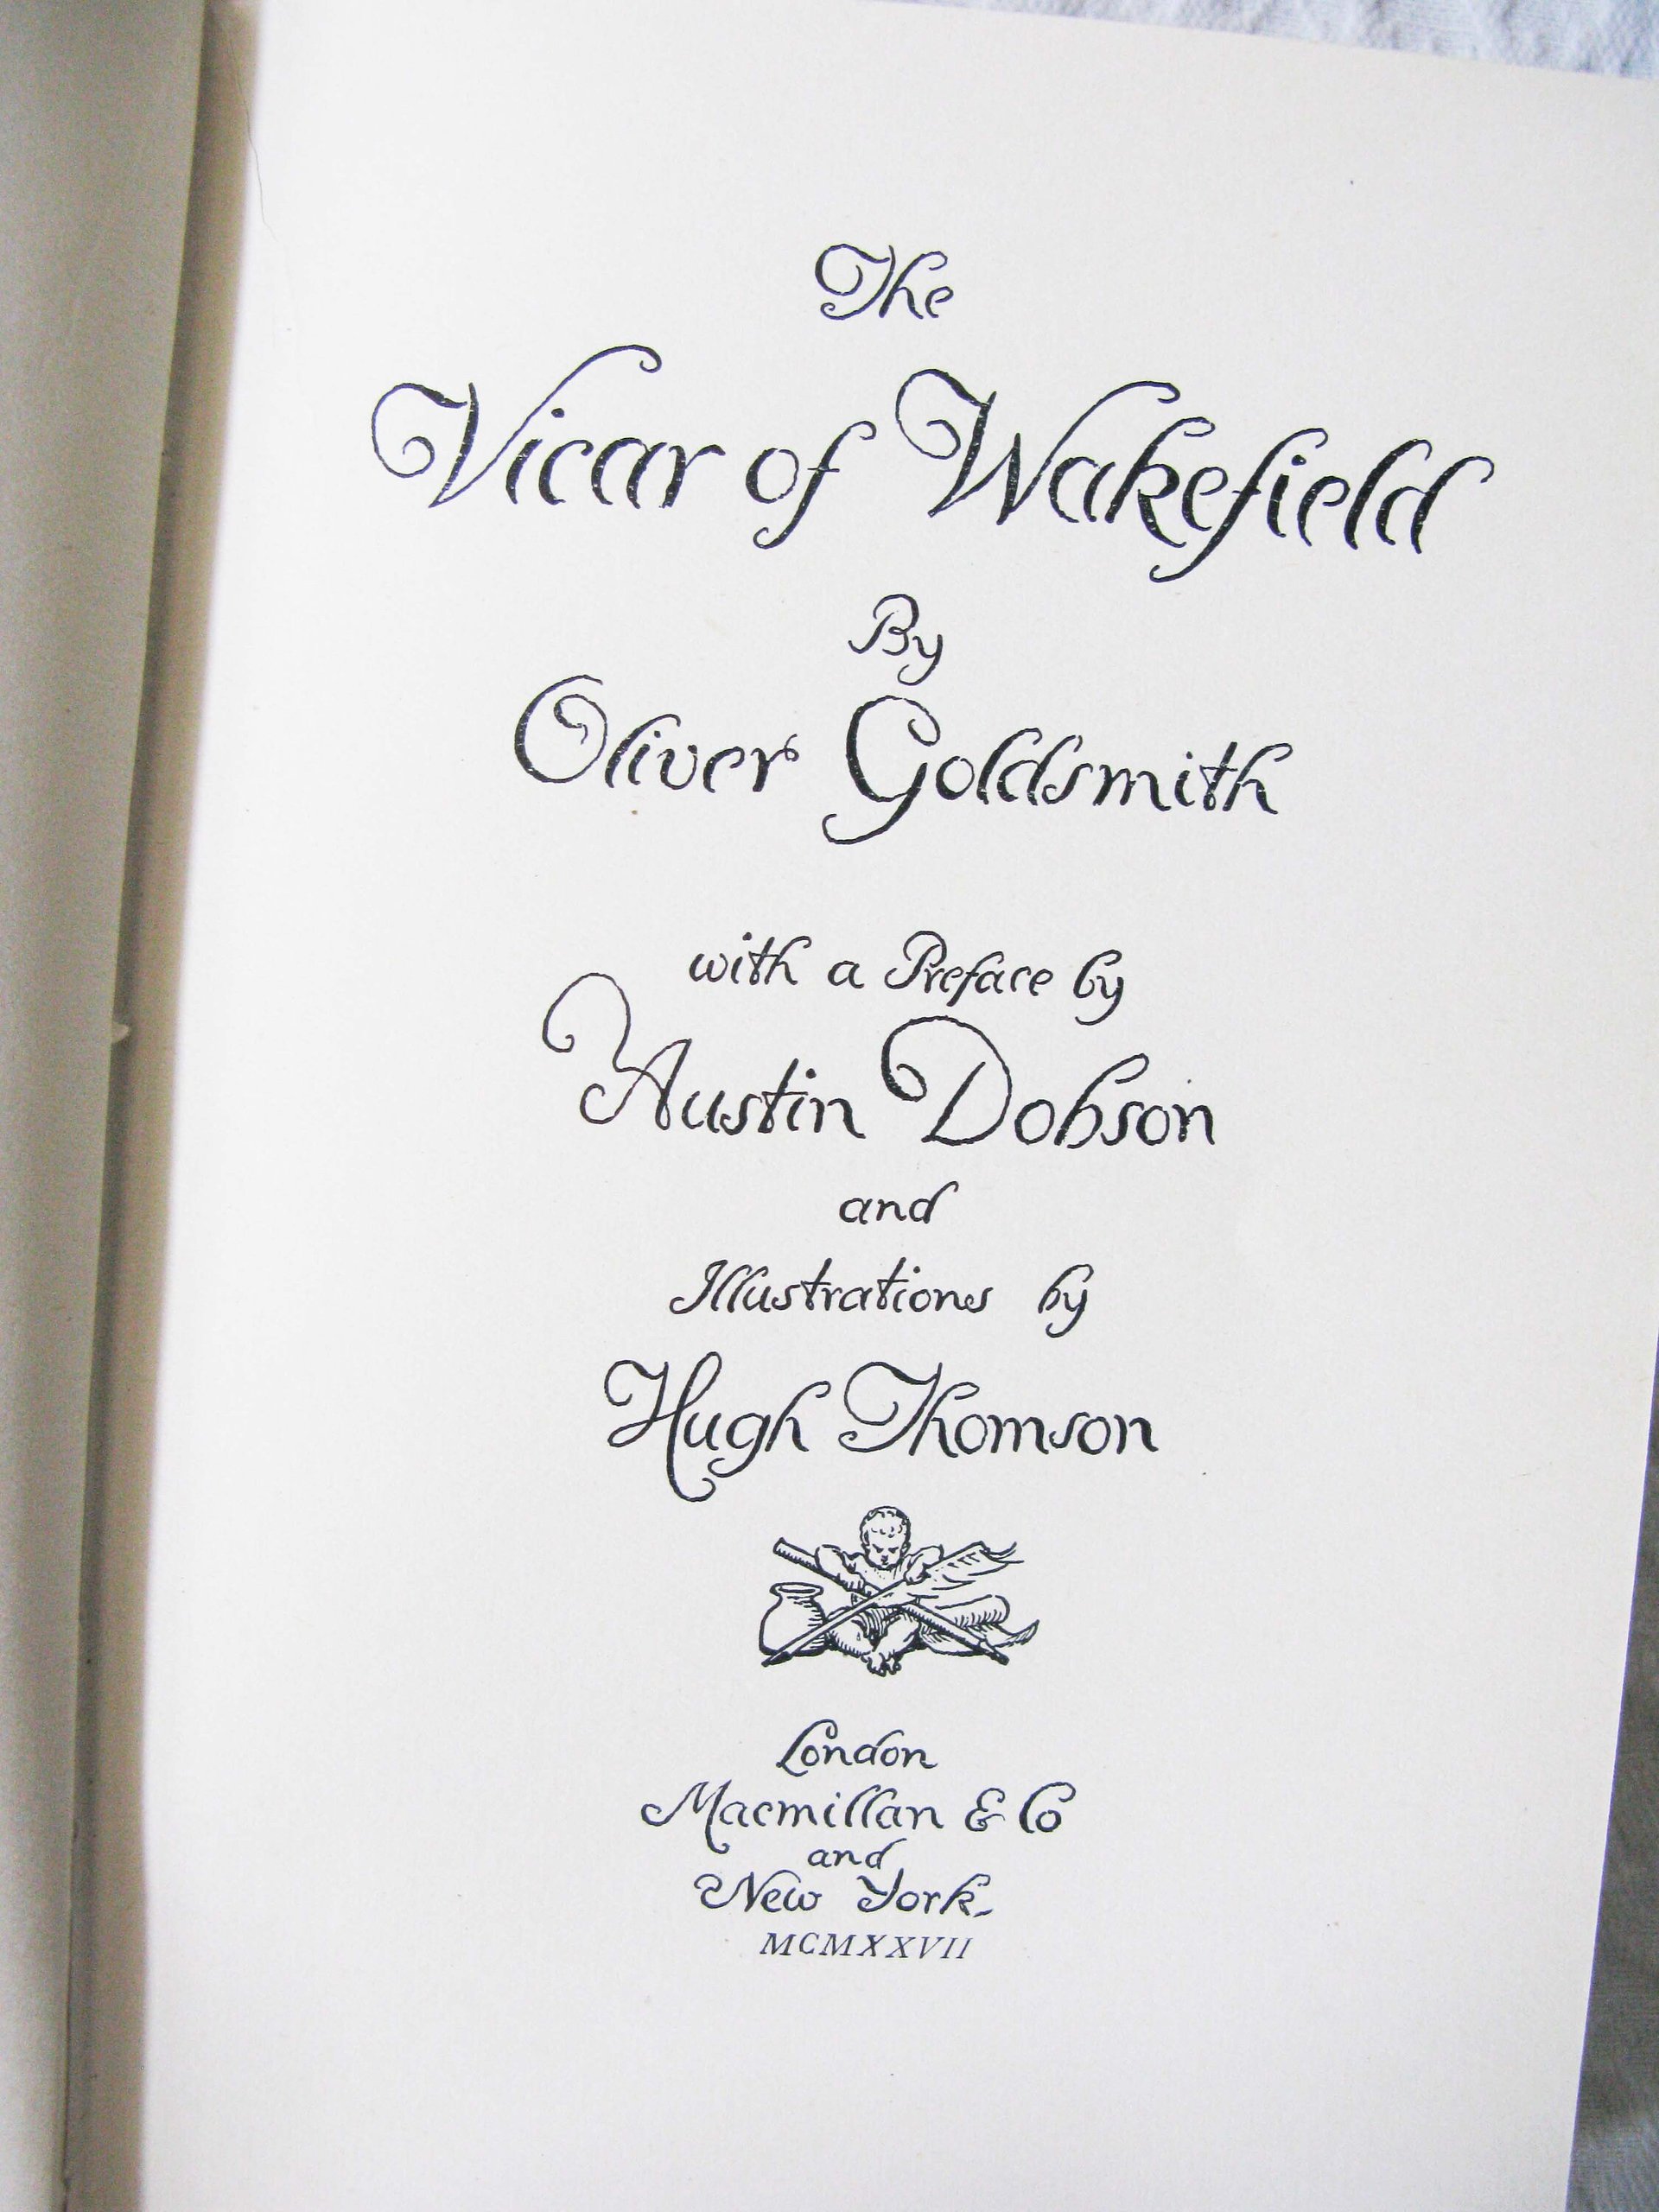 The
Vicar of Wakefield
By
Oliver Goldsmith
with a Preface by
Austin Dobson
and
Illustrations by
Hugh Thomson
London
Macmillan & Co
and
New York.
MCMXXVII